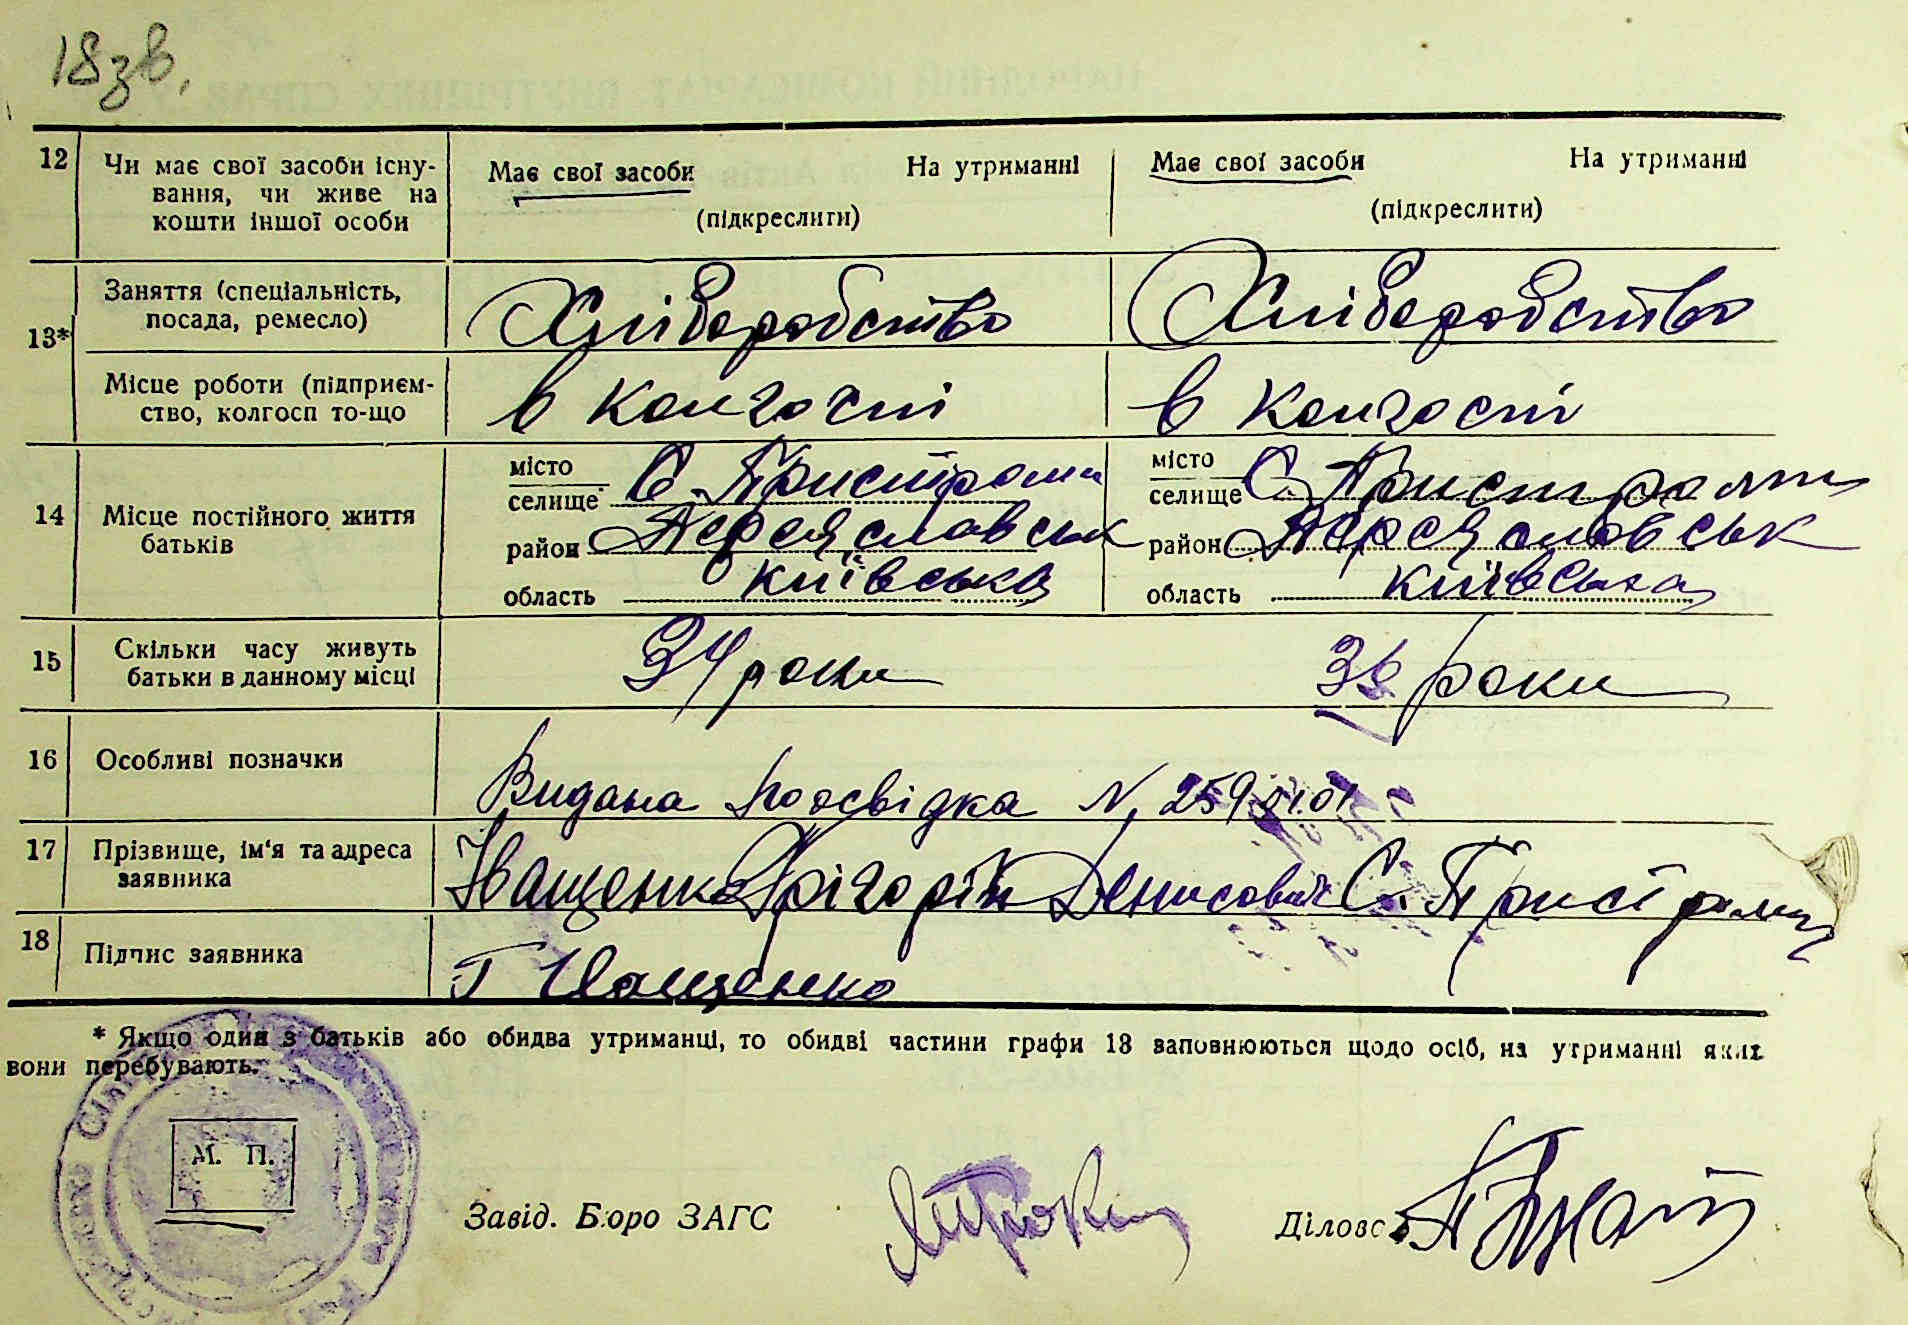 18зв.
12 Чи має свої засоби існу-
вання, чи живе на
кошти іншої особи
Має свої засоби На утриманні
(підкреслити)
Має свої засоби На утриманні
(підкреслити)
13*
Заняття (спеціальність,
посада, ремесло)
Хліборобство
Хліборобство
Місце роботи (підприєм-
ство, колгосп то-що
в колгоспі
в колгоспі
14 Місце постійного життя
батьків
місто
селище С. Пристроми
район Переяславськ
область Київська
місто
селище С. Пристроми
район Переяславськ
область Київська
15 Скільки часу живуть
батьки в данному місці
34 роки
роки
16 Особливі позначки
Видана посвідка №
17 Прізвище, ім'я та адреса
заявника
Іващенко Грігорій Денисович С. Пристроми
18 Підпис заявника
Г Іващенко
* Якщо один з батьків або обидва утриманці, то обидві частини графи 13 заповнюються щодо осіб, на утриманні яких
вони перебувають.
М. П.
Завід. Бюро ЗАГС
Діловод